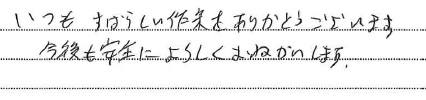 いつも すばらしい作業をありがとうございます
今後も安全によろしくおねがいします。